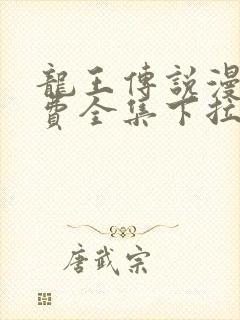 龍王傳說漫
費全集下拉
唐武宗